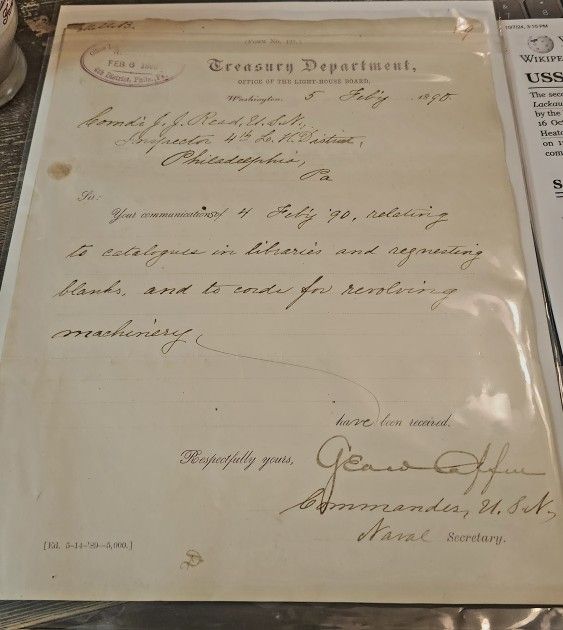 (Form No. 121.)
FEB 6 1890
4th District, Phila., Pa.
Treasury Department,
OFFICE OF THE LIGHT-HOUSE BOARD,
Washington, 5 Feb'y 1890.
Comd'r J. J. Read, U.S.N.,
Inspector 4th L. H. District,
Philadelphia,
Pa
Sir:
Your communications of 4 Feb'y '90, relating
to catalogues in libraries and requesting
blanks, and to cords for revolving
machinery,
have been received.
Respectfully yours,
Commander, U.S.N.,
Naval Secretary.
[Ed. 5-14-'89-5,000.]
10/7/24, 3:10 PM
WIKIPE
USS
The seco
Lackaw
by the
16 Oct
Heato
on 1
com
S